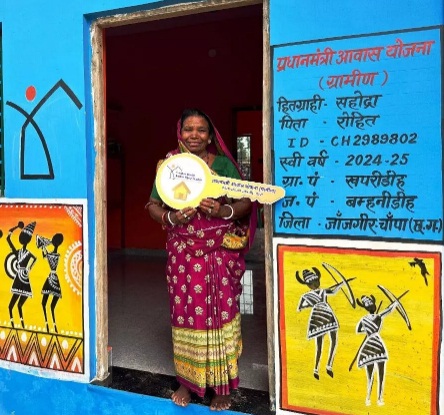 प्रधानमंत्री आवास योजना
(ग्रामीण)
हितग्राही- सहोद्रा
पिता - रोहित
ID - CH2989802
स्वी वर्ष - 2024-25
ग्रा. पं - खपरीडीह
ज. पं - बम्हनीडीह
जिला - जाँजगीर-चाँपा (छ.ग)